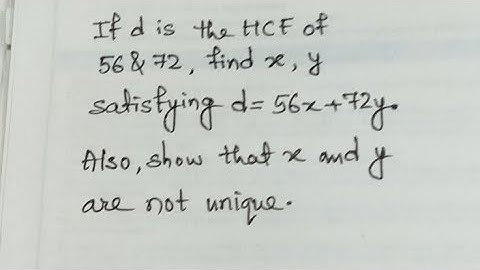 If d is the HCF of
56 & 72, find x, y
satisfying d = 56x + 72y.
Also, show that x and y
are not unique.